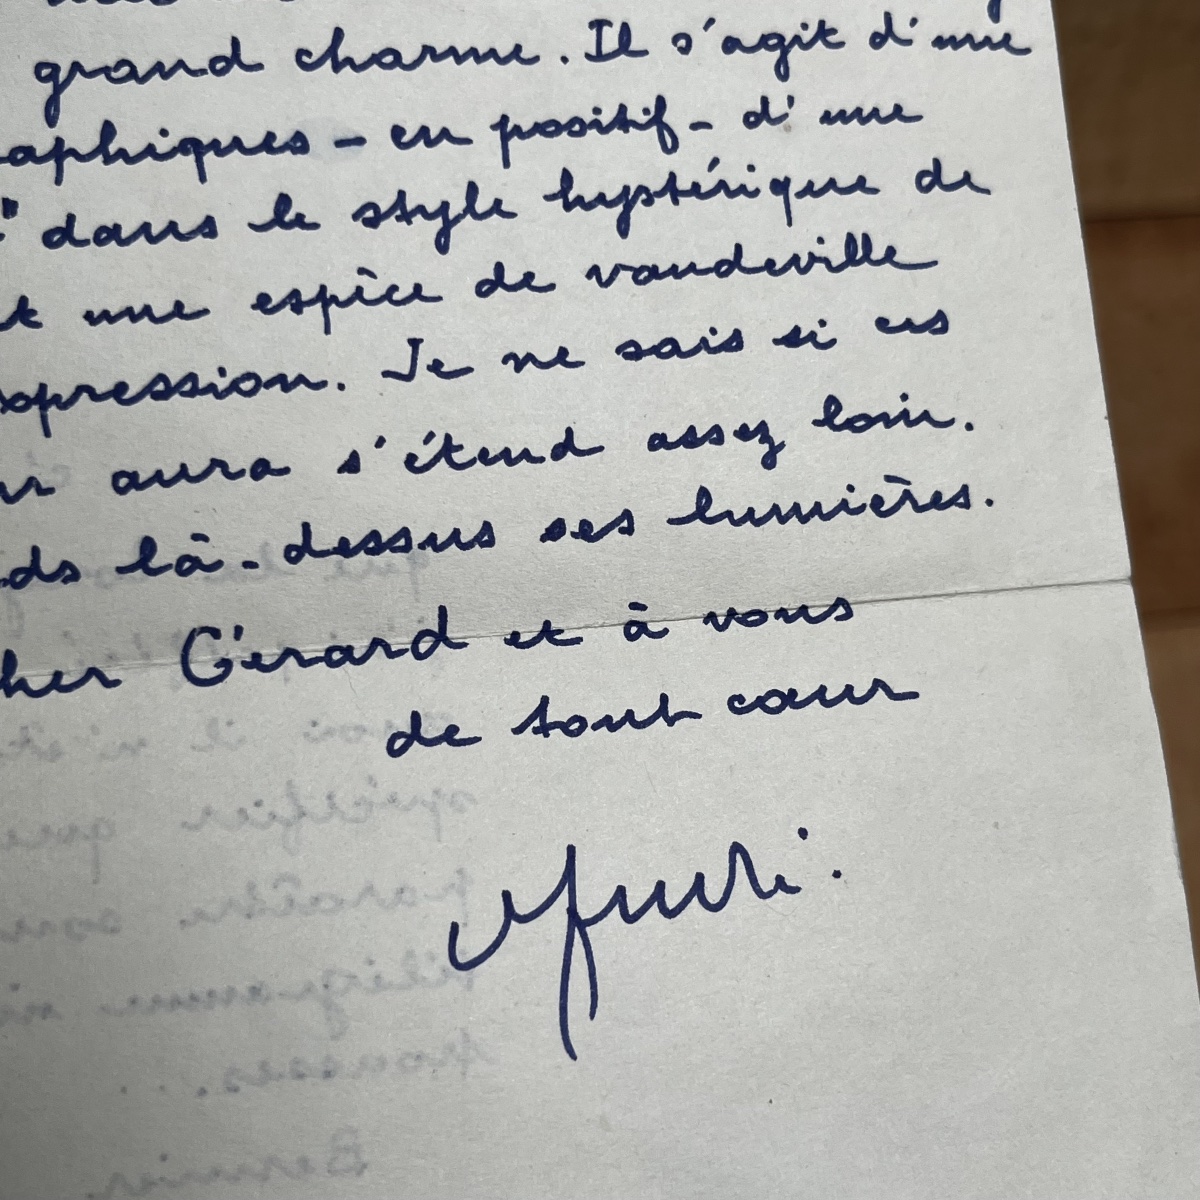 grand charme. Il s'agit d'une
aphiques - en positif - d'une
" dans le style hystérique de
t une espèce de vaudeville
pression. Je ne sais si ces
aura s'étend assez loin.
ds là-dessus ses lumières.
her Gérard et à vous
de tout cœur